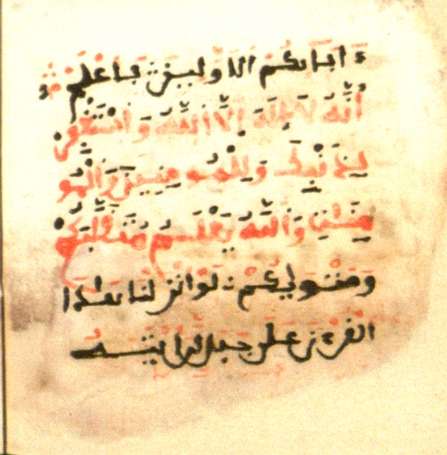 ءابائكم الاولين فاعلم
أَنَّهُ لَا إِلَهَ إِلَّا اللَّهُ وَاسْتَغْفِرْ
لِذَنْبِكَ وَلِلْمُومِنِينَ وَالْمُو
مِنَتِ وَاللَّهُ يَعْلَمُ مُتَقَلَّبَكُمْ
ومثويكم لوانزلنا هذا
القرءن على جبل لرايته